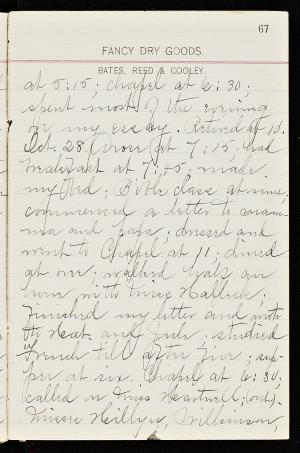 67
FANCY DRY GOODS.
BATES, REED & COOLEY.
at 5:15; chapel at 6:30;
spent most of the evening
on my essay. Retired at 10.
Oct. 28. Arose at 7:15; had
breakfast at 7:45; made
my bed; Bible class at nine;
commenced a letter to mam-
ma and papa; dressed and
went to Chapel at 11; dined
at one; walked half an
hour with Miss Hallock;
finished my letter and wrote
to and Julie; studied
French till after five; sup-
per at six. Chapel at 6:30;
called on Miss
Misses Hillyer, Wilkinson,